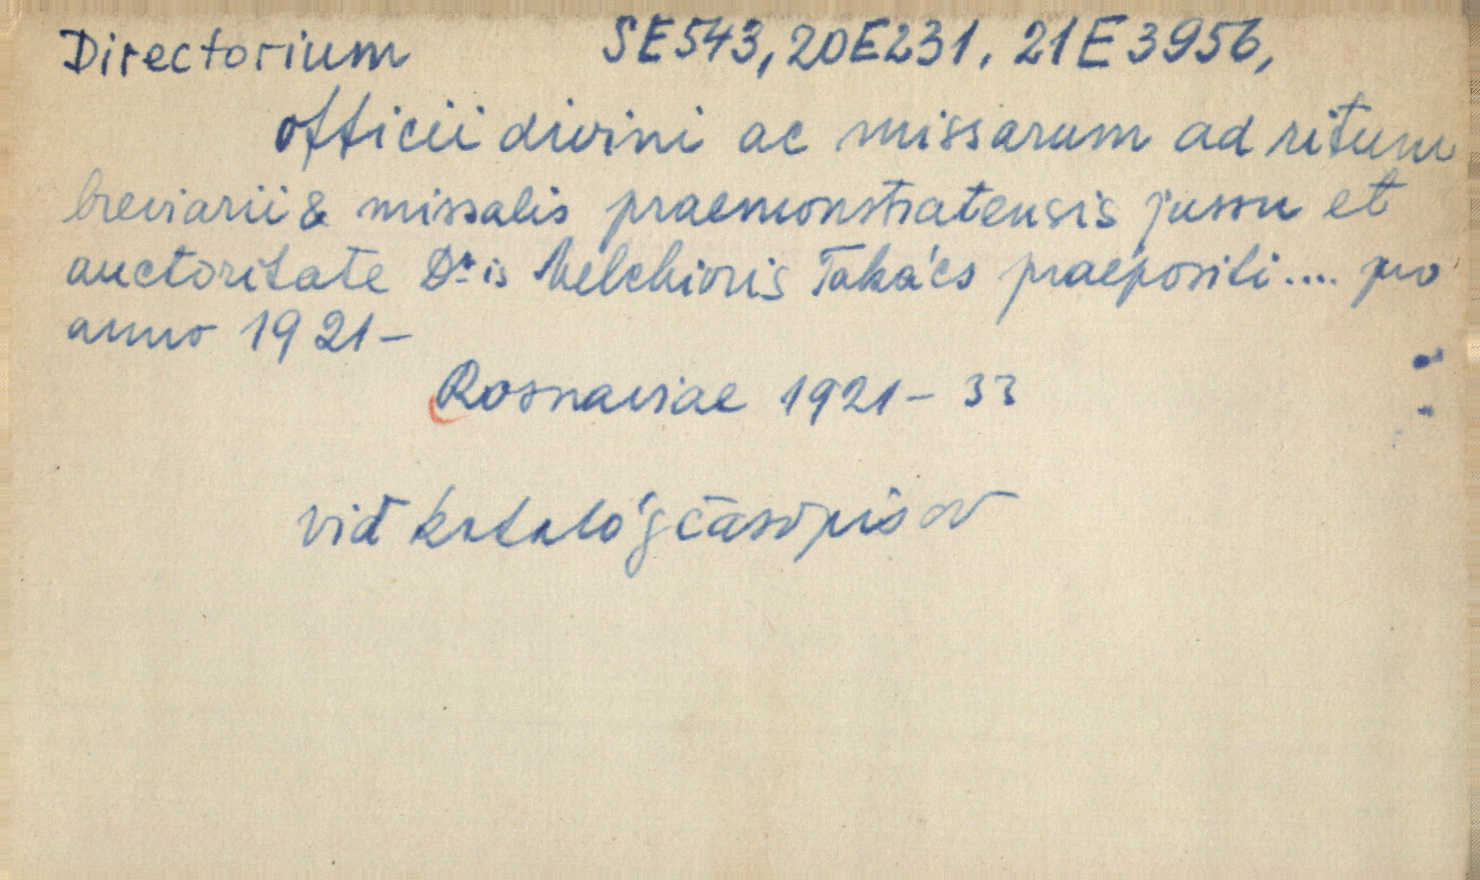 Directorium SE543, 20E231. 21E3956,
officii divini ac missarum ad ritum
breviarii & missalis praemonstratensis jussu et
auctoritate Dris Melchioris Takács praepositi.... pro
anno 1921-
Rosnaviae 1921- 33
viď katalóg časopisov